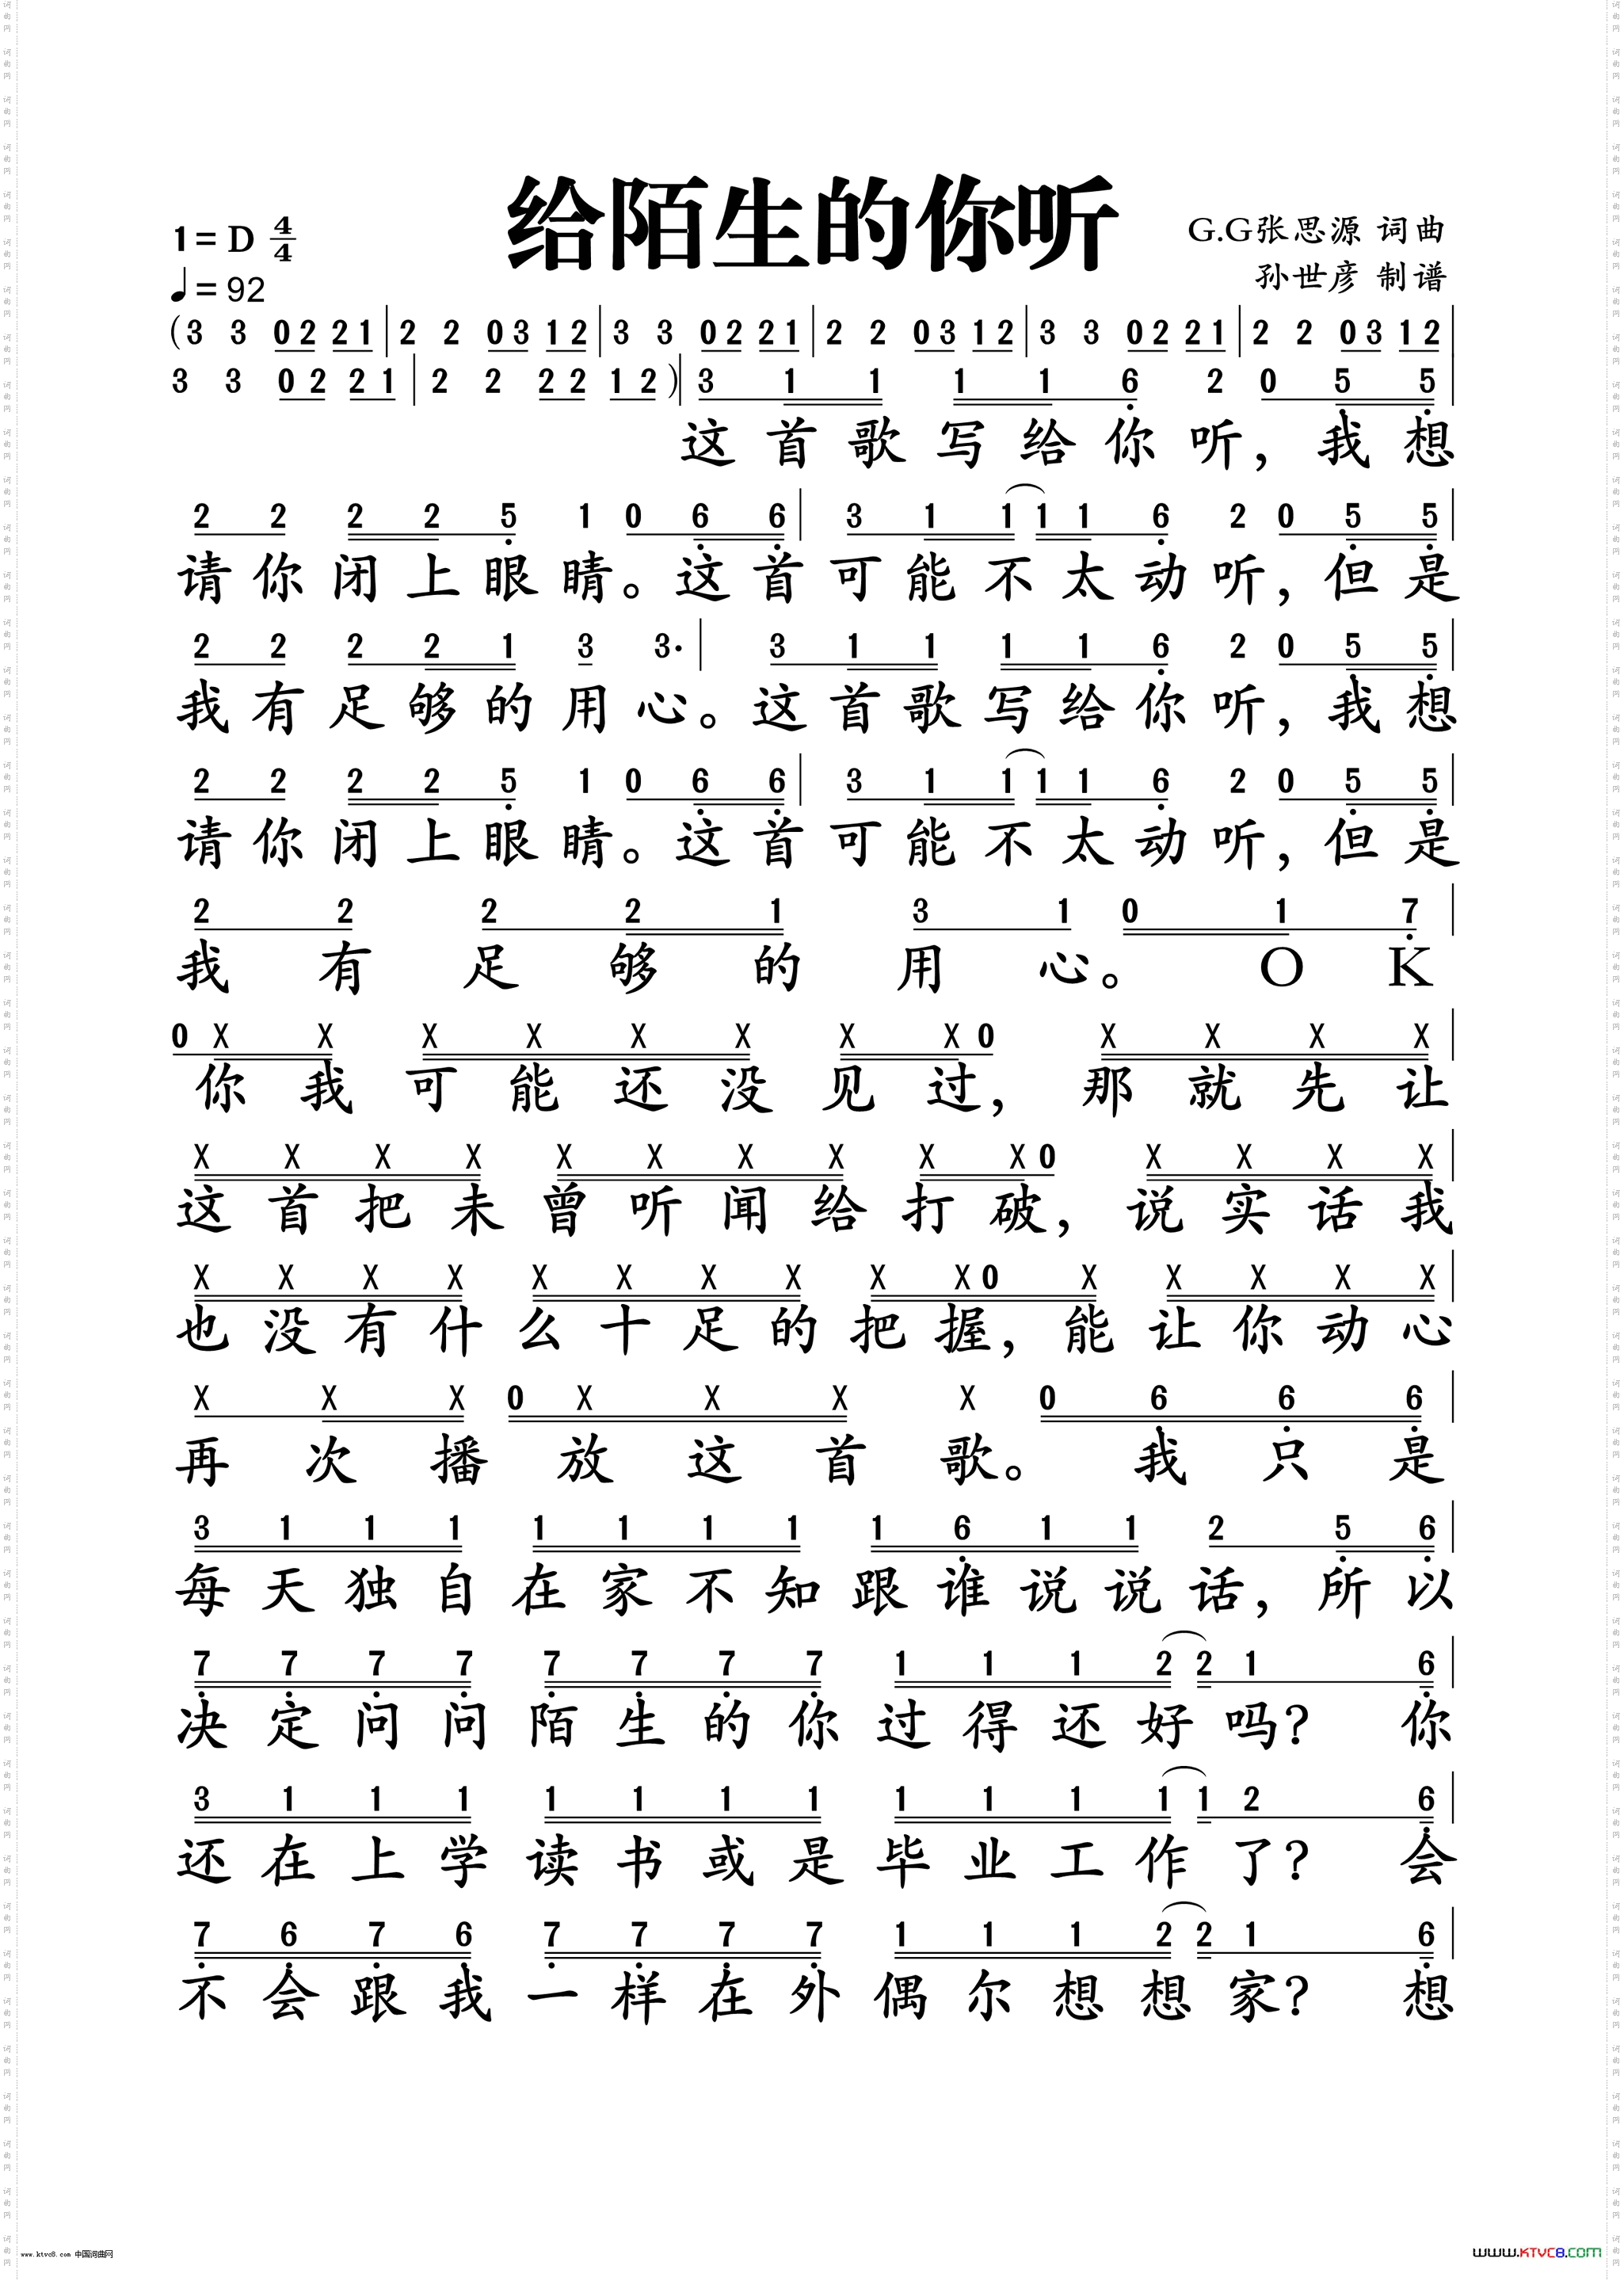 给陌生的你听
1= D 4/4
♩= 92
G.G张思源 词曲
孙世彦 制谱
(3 3 0 2 2 1 | 2 2 0 3 1 2 | 3 3 0 2 2 1 | 2 2 0 3 1 2 | 3 3 0 2 2 1 | 2 2 0 3 1 2 |
3 3 0 2 2 1 | 2 2 2 2 1 2 )| 3 1 1 1 1 6 2 0 5 5 |
这首歌写给你听，我想
2 2 2 2 5 1 0 6 6 | 3 1 1 1 1 6 2 0 5 5 |
请你闭上眼睛。这首可能不太动听，但是
2 2 2 2 1 3 3· | 3 1 1 1 1 6 2 0 5 5 |
我有足够的用心。这首歌写给你听，我想
2 2 2 2 5 1 0 6 6 | 3 1 1 1 1 6 2 0 5 5 |
请你闭上眼睛。这首可能不太动听，但是
2 2 2 2 1 3 1 0 1 7 |
我有足够的用心。O K
0 X X X X X X X X 0 X X X X |
你我可能还没见过，那就先让
X X X X X X X X X X 0 X X X X |
这首把未曾听闻给打破，说实话我
X X X X X X X X X X 0 X X X X X |
也没有什么十足的把握，能让你动心
X X X 0 X X X X 0 6 6 6 |
再次播放这首歌。我只是
3 1 1 1 1 1 1 1 1 6 1 1 2 5 6 |
每天独自在家不知跟谁说说话，所以
7 7 7 7 7 7 7 7 1 1 1 2 2 1 6 |
决定问问陌生的你过得还好吗？你
3 1 1 1 1 1 1 1 1 1 1 1 1 2 6 |
还在上学读书或是毕业工作了？会
7 6 7 6 7 7 7 7 1 1 1 2 2 1 6 |
不会跟我一样在外偶尔想想家？想
www.ktvc8.com 中国词曲网
www.KTVC8.com